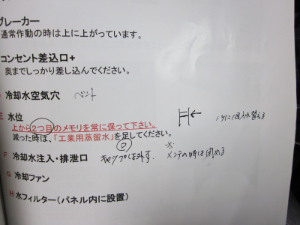 ブレーカー
通常作動の時は上に上がっています。
コンセント差込口+
奥までしっかり差し込んでください。
冷却水空気穴 ベント
水位
上から2つ目のメモリを常に保って下さい。
減った時は、「工業用蒸留水」を足してください。
冷却水注入・排泄口 キャップを外す。 メンテの時は閉める
冷却ファン
水フィルター(パネル内に設置)